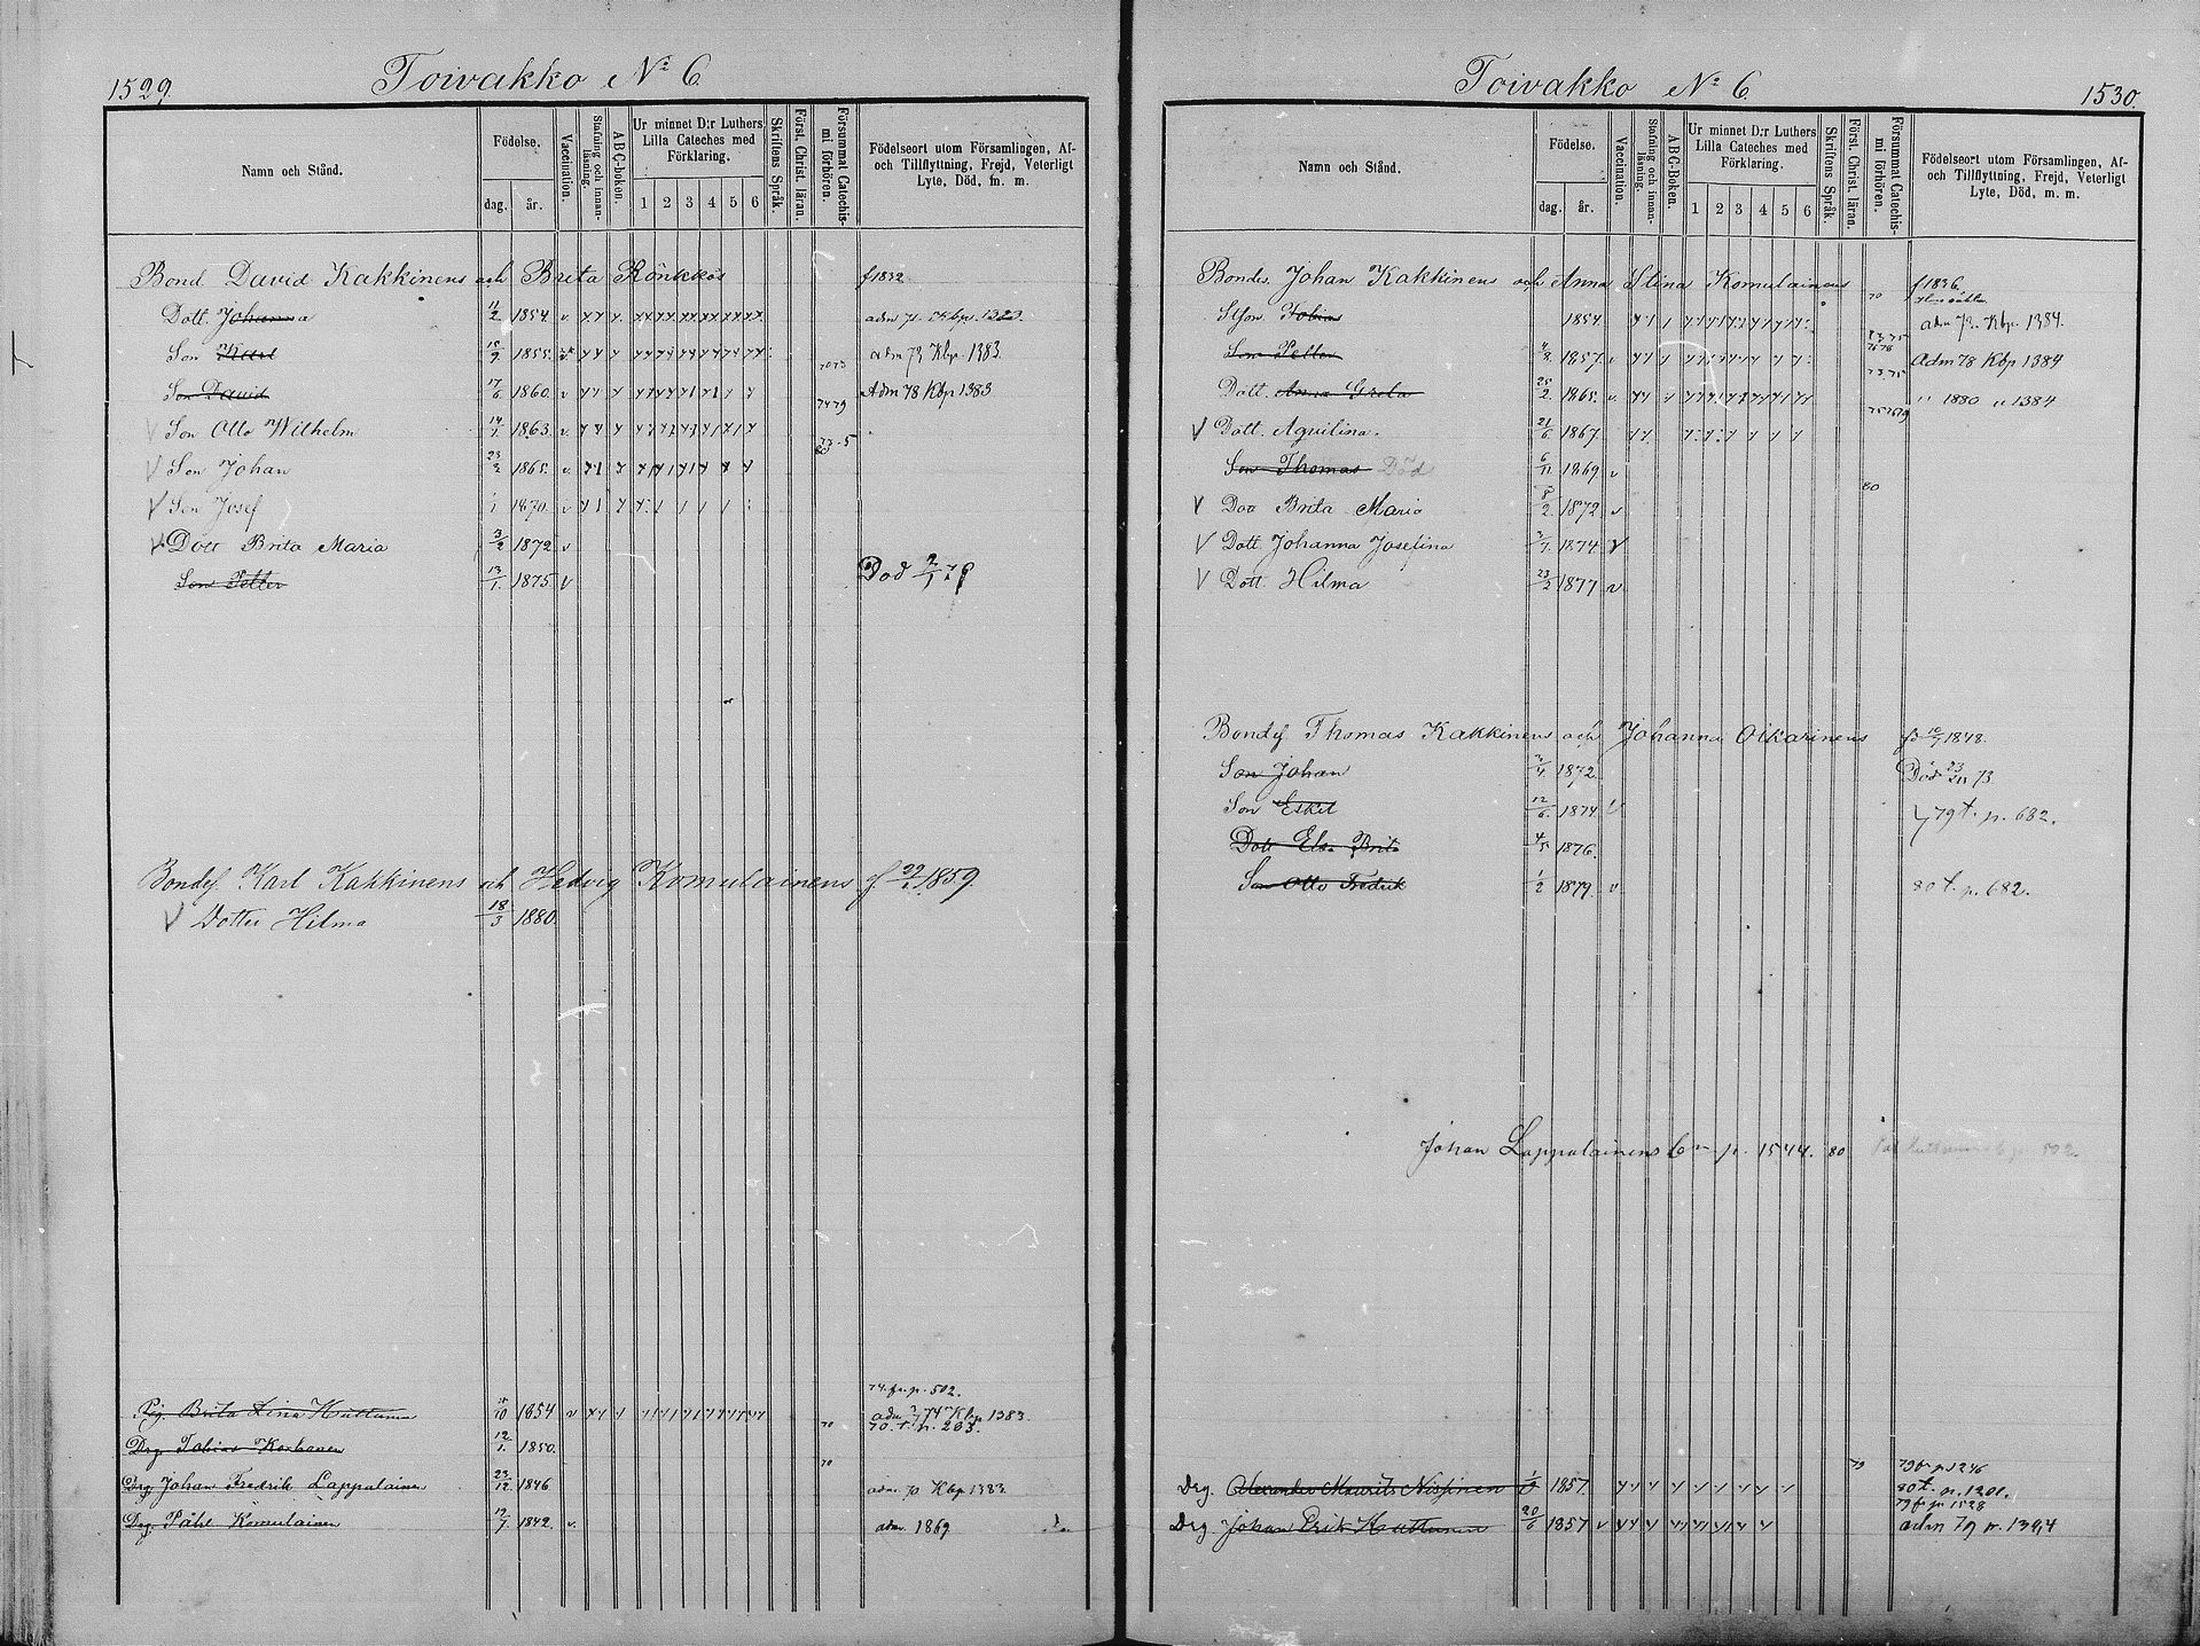 1529.
Toivakko No 6.
Namn och Stånd.
Födelse.
dag.
år.
Vaccination.
Stafning och innan-
läsning.
ABC-boken.
Ur minnet D:r Luthers
Lilla Cateches med
Förklaring.
1 2 3 4 5 6
Skriftens Språk.
Först. Christ. läran.
Försummat Catechis-
mi förhören.
Födelseort utom Församlingen, Af-
och Tillflyttning, Frejd, Veterligt
Lyte, Död, m. m.
Bond David Kakkinens och Brita Rönkkös f 1832
Dott. Johanna 11/2 1854. v
Son Karl 15/9 1855. 70 73 adm 73 Kbp. 1383.
Son David 17/6 1860. v 74 79 Adm 78 Kbp 1383
Son Otto Wilhelm 14/1 1863. v.
Son Johan 1865. v.
V Son Josef 1870. v
V Dott Brita Maria 3/2 1872 v
Son Petter 13/1. 1875 V Död 2/1 79
Bondes. Karl Kakkinens och Hedvig Komulainens f. 1859.
V Dotter Hilma 18/3 1880.
74. fr. p. 502.
Pig. Brita Lina Huttunen 1854 v 70 adm 74 Kbp 1383.
70. t. p. 263.
Drg. Tobias Korhonen 12/1. 1850. 70
Drg. Johan Fredrik Lappalainen 23/12 1846 adm. 70 Kbp 1383.
Drg. Påhl Komulainen 1842. v. adm. 1869
Toivakko No 6.
1530.
Namn och Stånd.
Födelse.
dag.
år.
Vaccination.
Stafning och innan-
läsning.
ABC-Boken.
Ur minnet D:r Luthers
Lilla Cateches med
Förklaring.
1 2 3 4 5 6
Skriftens Språk.
Först. Christ. läran.
Försummat Catechis-
mi förhören.
Födelseort utom Församlingen, Af-
och Tillflyttning, Frejd, Veterligt
Lyte, Död, m. m.
Bondes. Johan Kakkinens och Anna Stina Komulainens 70 f 1836.
Son Tobias 1854. adm 73. Kbp. 1384.
Son Petter 1857. Adm 78 Kbp 1384
Dott. Anna Greta 25/2 1865. v. " 1880 " 1384
V Dott. Aquilina. 21/6 1867
Son Thomas Död 6/11 1869 v
80
V Dott Brita Maria 8/2. 1872 v
V Dott. Johanna Josefina 1874 V
V Dott Hilma 23/2 1877 v
Bondes Thomas Kakkinens och Johanna Oikarinens 1848.
Son Johan 1872 Död 73
Son Eskil 12/6. 1874. v 79 t. p. 682.
Dott Elsa Brita 4/5 1876.
Son Otto Fredrik 1/2 1879. v 80 t. p. 682.
Johan Lappalainens p. 1544. 80
79 79 fr p 1246
Drg. Alexander Maurits Nissinen 1857. 80 t. p. 1201.
79 fr p 1528
Drg. Johan Erik Huttunen 20/6 1857 v adm 79 p. 1384